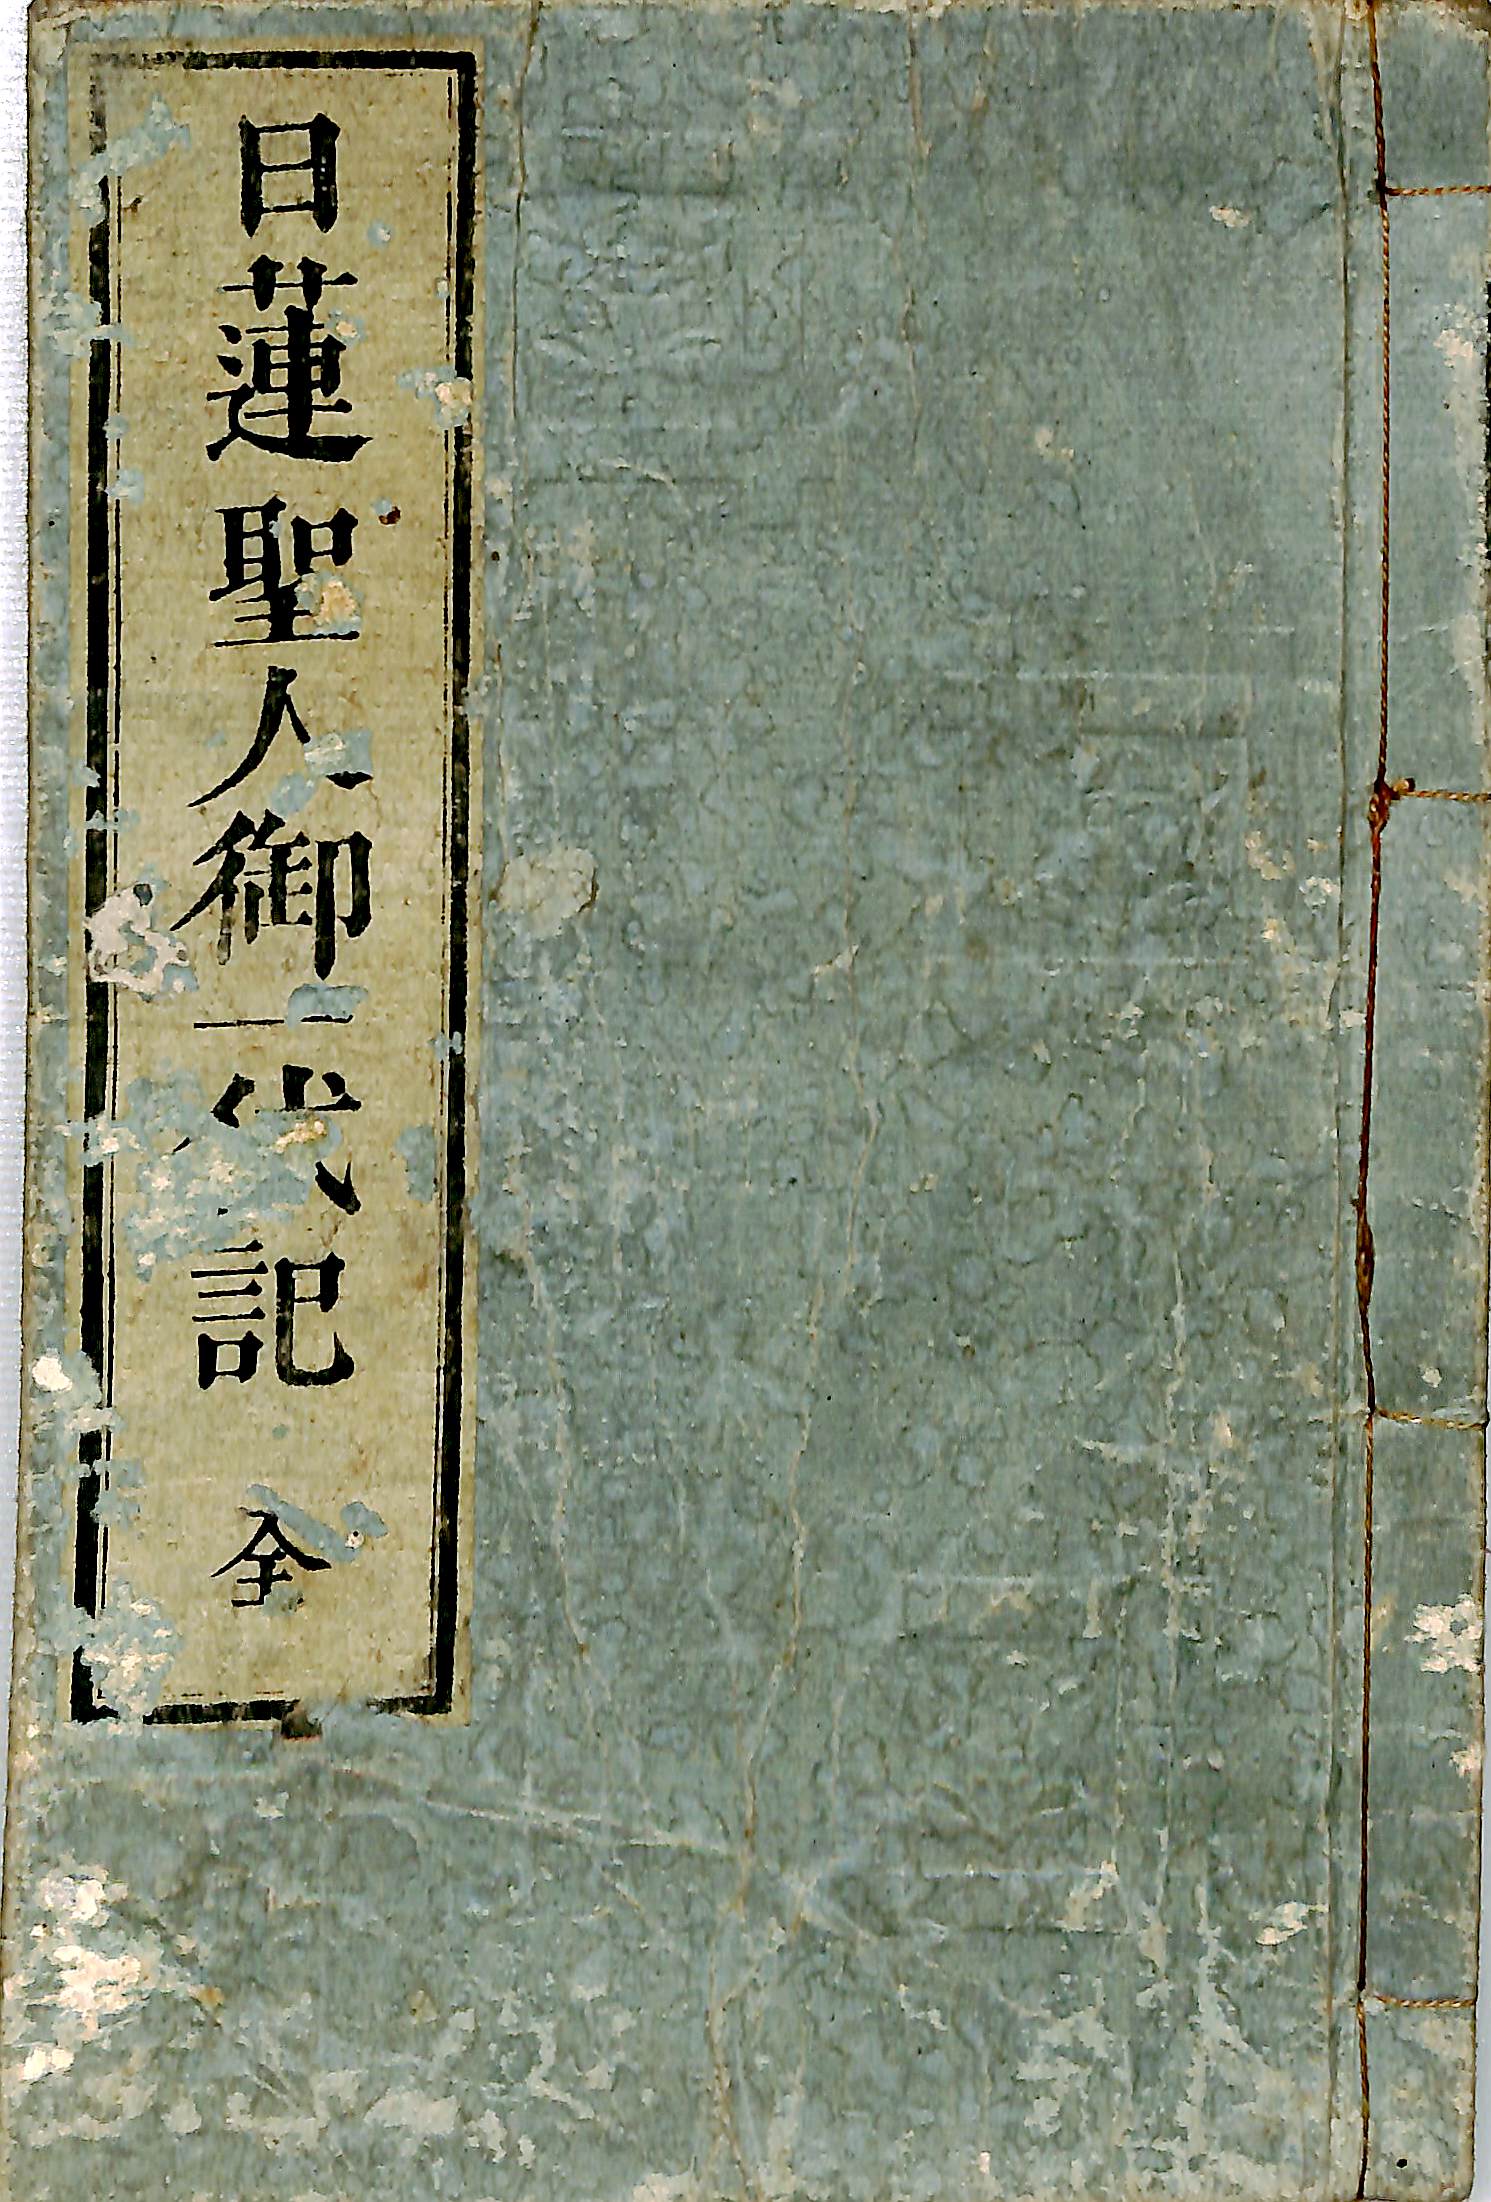 日蓮聖人御一代記 全